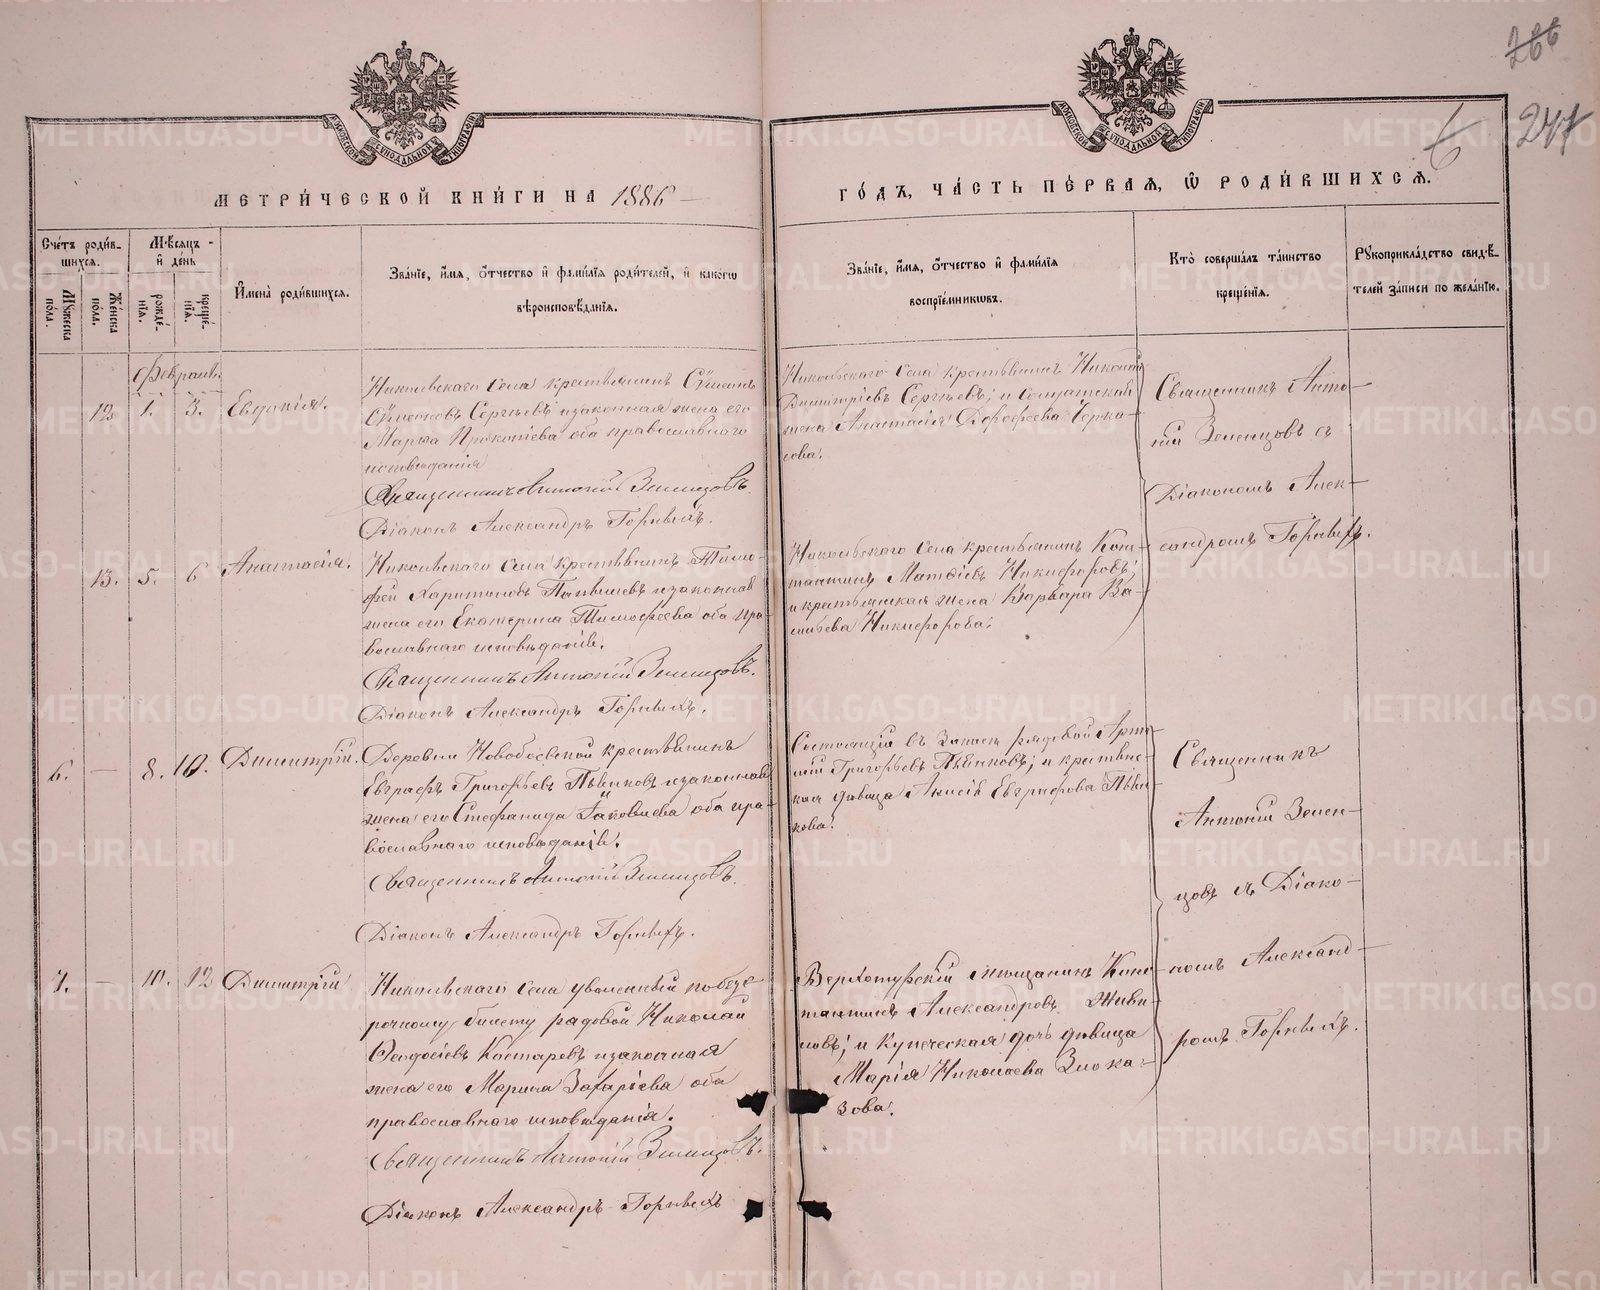 266
247
6
МОСКОВСКОЙ СУНОДАЛЬНОЙ ТИПОГРАФІИ
МОСКОВСКОЙ СУНОДАЛЬНОЙ ТИПОГРАФІИ
МЕТРИ́ЧЕСКОЙ КНИ́ГИ НА 1886
ГО́ДЪ, ЧА́СТЬ ПЕ́РВАЯ, Ѡ҆ РОДИ́ВШИХСЯ.
Сче́тъ роди́в-
шихся.
Мꙋжеска по́ла.
Же́нска по́ла.
Мѣ́сяцъ
и҆ де́нь
рожде́-
нїѧ.
креще́-
нїѧ.
И҆мена̀ роди́вшихся.
Зва́нїе, и҆́мѧ, о҆́тчество и҆ фами́лїѧ роди́телей, и҆ како́гѡ
вѣроисповѣ́данїѧ.
Зва́нїе, и҆́мѧ, о҆́тчество и҆ фами́лїѧ
воспрїе́мникѡвъ.
Кто̀ соверша́лъ та́инство
креще́нїѧ.
Рꙋкоприкла́дство свидѣ́-
телей за́писи по жела́нїю.
Февраль
12. 1. 3. Евдокія.
Никольскаго Села крестьянинъ Сѵмеонъ
Сѵмеоновъ Сергѣевъ и законная жена его
Марѳа Прокопіева оба православнаго
исповѣданія
Священникъ Антоній Зеленцовъ.
Діаконъ Александръ Горныхъ.
Никольскаго Села крестьянинъ Николай
Димитріевъ Сергѣевъ; и солдатская
жена Анастасія Дорофеева Черка-
сова.
Священникъ Анто-
ній Зеленцовъ съ
Діакономъ Алек-
сандромъ Горныхъ.
13. 5. 6 Анастасія.
Никольскаго Села крестьянинъ Тимо-
фей Харитоновъ и законная
жена его Екатерина Тимофеева оба пра-
вославнаго исповѣданія.
Священникъ Антоній Зеленцовъ.
Діаконъ Александръ Горныхъ.
Никольскаго Села крестьянинъ Конс-
тантинъ Матѳіевъ Никифоровъ;
и крестьянская жена Варвара Ва-
сильева Никифорова.
6. — 8. 10. Димитрій.
Деревни Новобоевской крестьянинъ
Евграфъ Григорьевъ Пьянковъ и законная
жена его Стефанида Іаковлева оба пра-
вославнаго исповѣданія.
Священникъ Антоній Зеленцовъ.
Діаконъ Александръ Горныхъ.
Состоящій въ Запасѣ рядовой
Григорьевъ Пьянковъ; и крестьянс-
кая дѣвица Анисія Евграфова Пьян-
кова.
Священникъ
Антоній Зелен-
цовъ съ Діако-
номъ Александ-
ромъ Горныхъ.
7. — 10. 12 Димитрій
Никольскаго Села уволенный по безс-
рочному билету рядовой Николай
Ѳеодосіевъ Костаревъ и законная
жена его Марина Захаріева оба
православнаго исповѣданія.
Священникъ Антоній Зеленцовъ.
Діаконъ Александръ Горныхъ
Верхотурскій мѣщанинъ Конс-
тантинъ Александровъ Живи-
ловъ; и Купеческая дочь дѣвица
Марія Николаева Злока-
зова.
METRIKI.GASO-URAL.RU